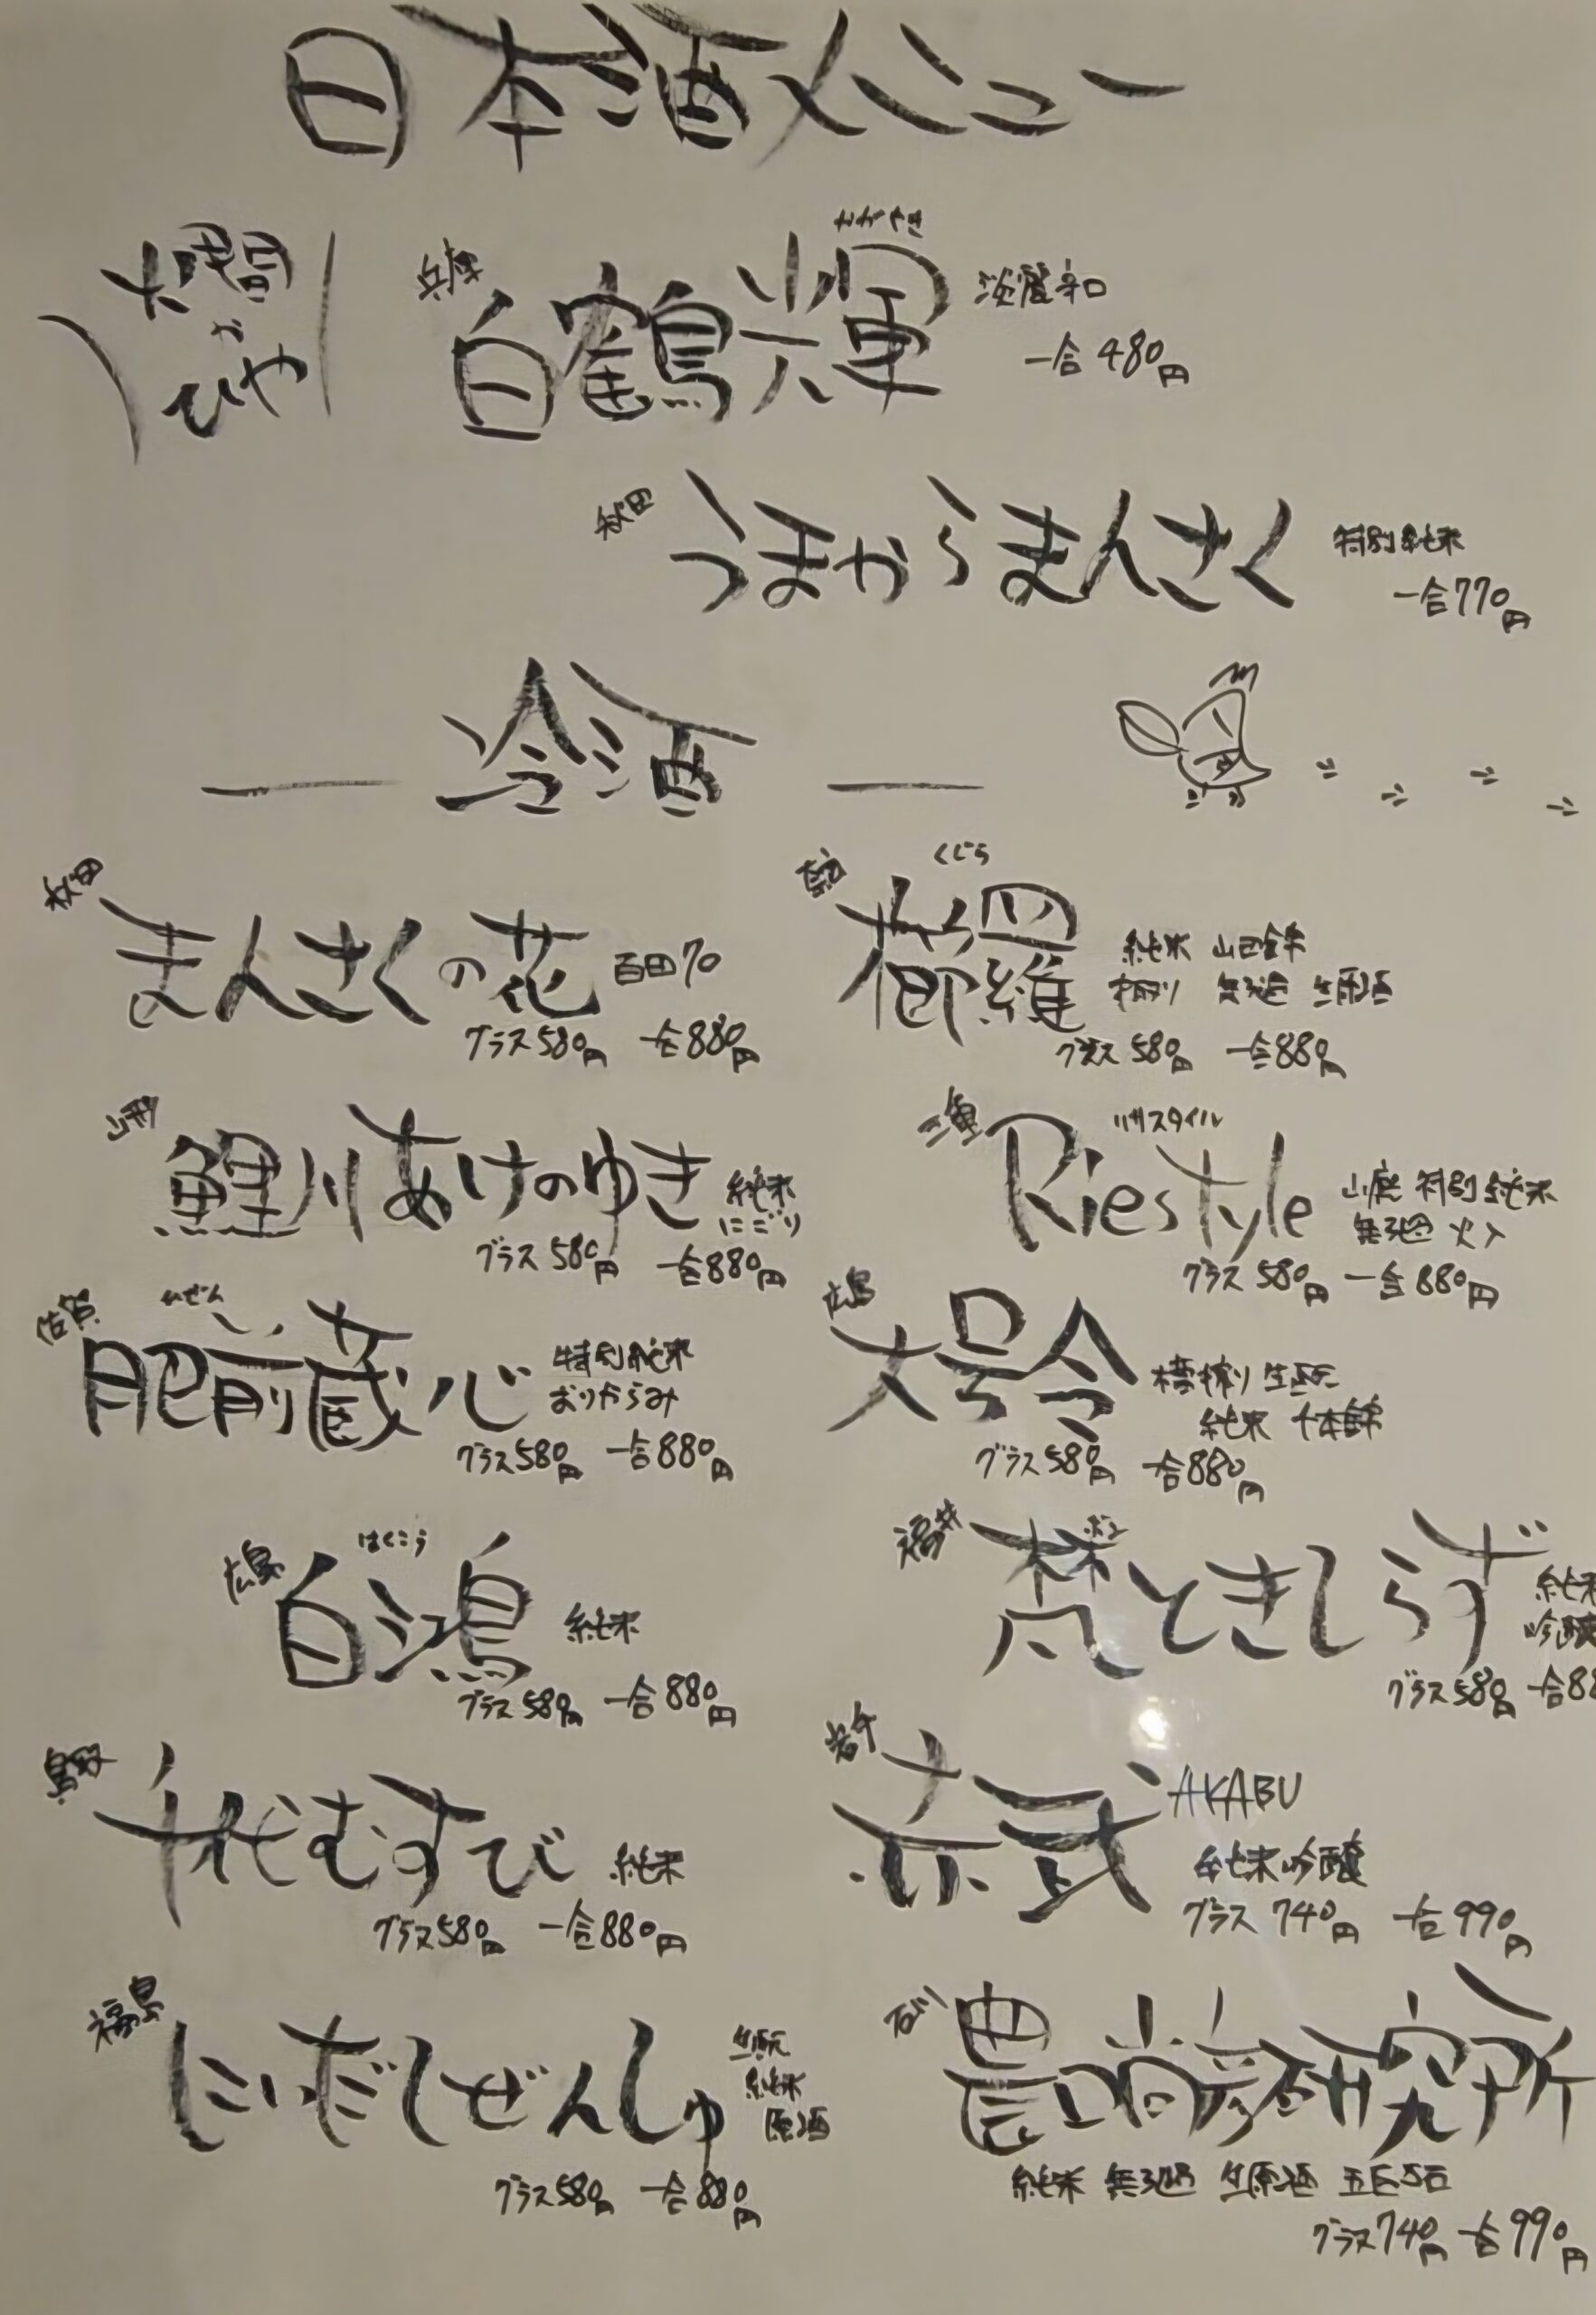 日本酒メニュー
燗
か
ひや
兵庫
かがやき
白鶴 輝
淡麗辛口
一合 480円
秋田
うまからまんさく
特別純米
一合770円
冷酒
秋田
まんさくの花
百田70
グラス580円 一合880円
くじら
櫛羅
純米 山田錦
槽搾り 無濾過 生原酒
グラス580円 一合880円
山形
鯉川あけのゆき
純米
にごり
グラス580円 一合880円
三重
リエスタイル
Riestyle
山廃 特別純米
無濾過 火入
グラス580円 一合880円
佐賀
ひぜん
肥前蔵心
特別純米
おりがらみ
グラス580円 一合880円
広島
大号令
槽搾り 生酛
純米 千本錦
グラス580円 一合880円
広島
はくこう
白鴻
純米
グラス580円 一合880円
福井
ボン
梵ときしらず
純米
吟醸
グラス580円 一合88
鳥取
千代むすび
純米
グラス580円 一合880円
岩手
赤武
AKABU
純米吟醸
グラス740円 一合990円
福島
にいだしぜんしゅ
生酛
純米
原酒
グラス580円 一合880円
石川
農口尚彦研究所
純米 無濾過 生原酒 五百万石
グラス740円 一合990円